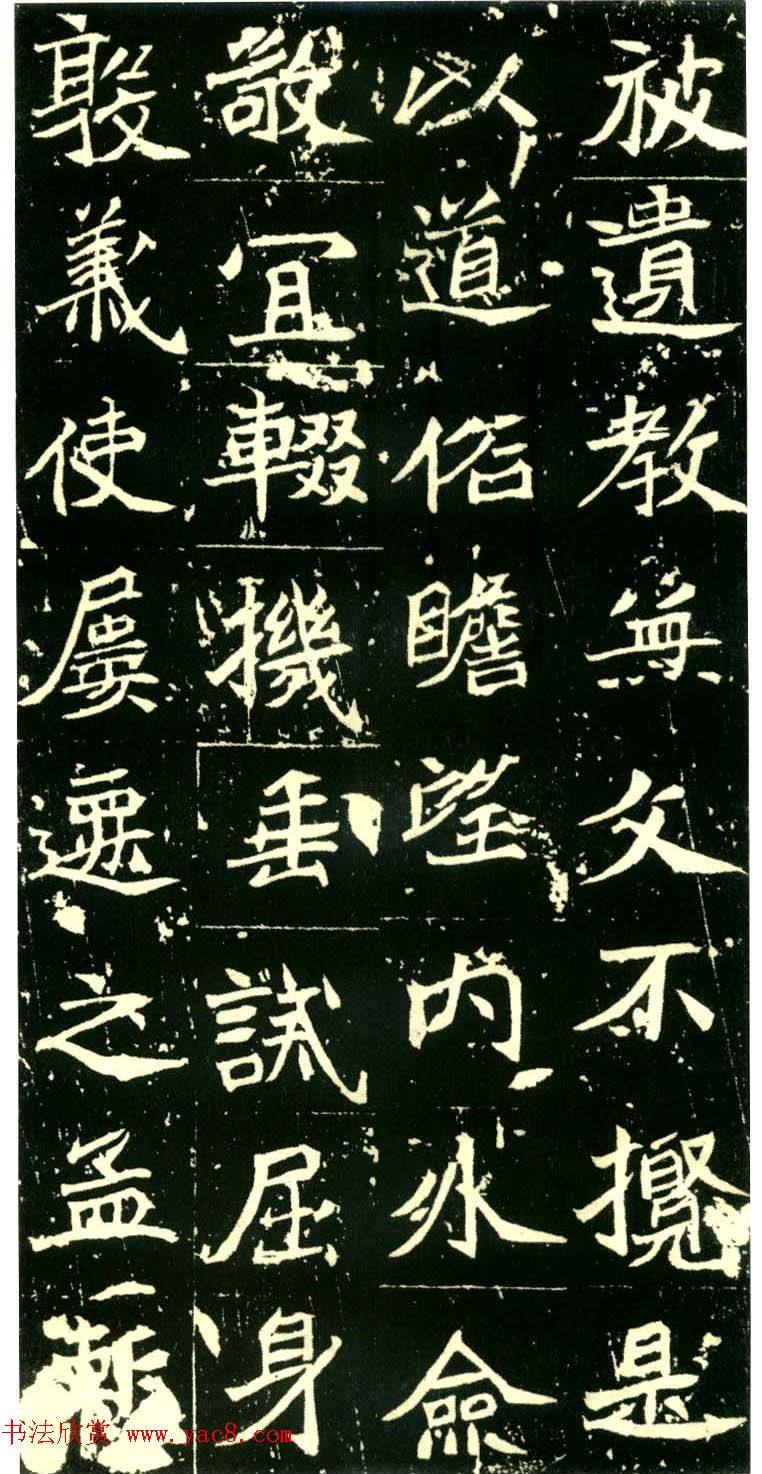 被遺教無文不攬是
以道俗瞻望内外僉
敬宜輟機垂試屈身
敦義使屢遷之孟
书法欣赏 www.yac8.com